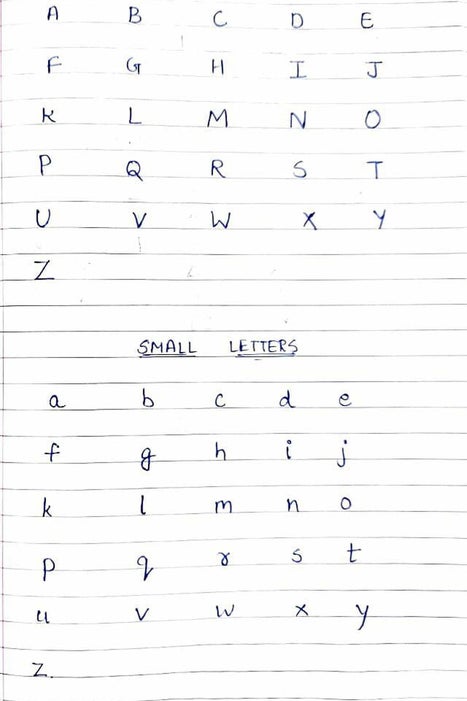 A B C D E
F G H I J
K L M N O
P Q R S T
U V W X Y
Z
SMALL LETTERS
a b c d e
f g h i j
k l m n o
p q r s t
u v w x y
z.